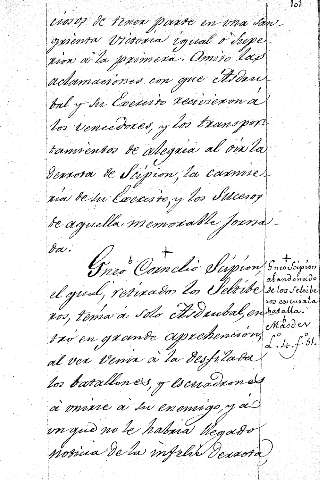 101
ciosos de tener parte en una san-
grienta victoria igual ó supe-
rior á la primera. Omito las
aclamaciones con que Asdru-
bal y su Exercito recivieron á
los vencedores, y los transpor-
tamientos de alegria al oir la
derrota de Scipion, la carnice-
ria de su Exercito, y los Sucesos
de aquella memorable Jorna-
da.
Gneo Cornelio Scipion
el qual, retirados los Seltibe
ros, tenia á solo Asdrubal, en
tró en grande aprehencion,
al ver venir á la desfilada
los batallones, y escuadrones
á unirse a su enemigo, y á
un que no le habia llegado
noticia de la infeliz derrota
Gneo Scipion
abandonado
de los Seltibe
ros escusa la
batalla.
Masdeu